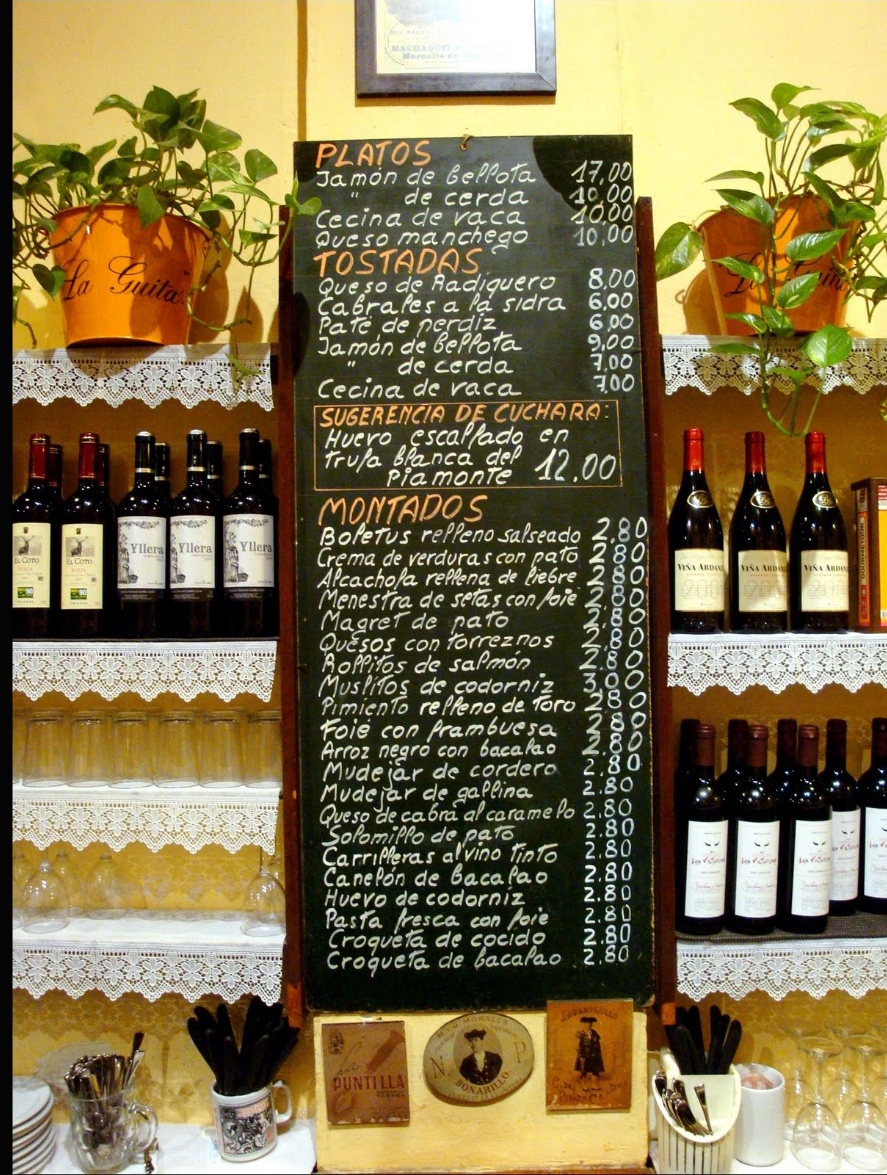 MACHAQUI
PLATOS
Jamón de bellota 17,00
" de cerda 10,00
Cecina de vaca 10,00
Queso manchego 10,00
TOSTADAS
Queso de Radiquero 8,00
Cabrales a la sidra 6,00
Paté de perdiz 6,00
Jamón de bellota 9,00
" de cerda 7,00
Cecina de vaca 7,00
SUGERENCIA DE CUCHARA:
Huevo escalfado en
trufa blanca del
piamonte 12.00
MONTADOS
Boletus relleno salseado 2.80
Crema de verduras con pato 2.80
Alcachofa rellena de liebre 2.80
Menestra de setas con foie 2.80
Magret de pato 2.80
Quesos con torreznos 2.80
Rollitos de salmón 2.80
Muslitos de codorniz 3.00
Pimiento relleno de Toro 2.80
Foie con frambuesa 2.80
Arroz negro con bacalao 2.80
Mudejar de cordero 2.80
Mudejar de gallina 2.80
Queso de cabra al caramelo 2.80
Solomillo de pato 2.80
Carrilleras al vino tinto 2.80
Canelón de bacalao 2.80
Huevo de codorniz 2.80
Pasta fresca con foie 2.80
Croqueta de cocido 2.80
Croqueta de bacalao 2.80
La Guita
La Guita
EL COTO
EL COTO
Yllera
Yllera
Yllera
VIÑA ARDANZA
VIÑA ARDANZA
VIÑA ARDANZA
La
PUNTILLA
MORALES
N. P.
BONARILLO